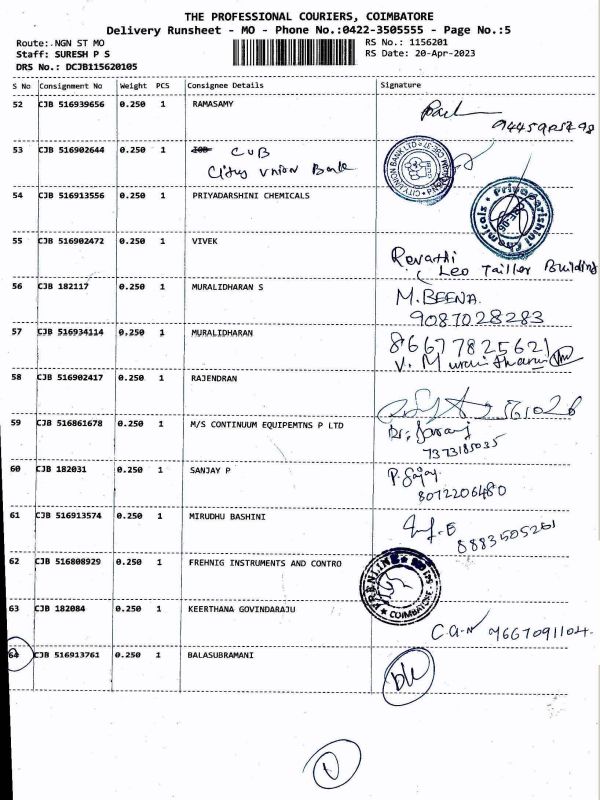 THE PROFESSIONAL COURIERS, COIMBATORE
Delivery Runsheet - MO - Phone No.:0422-3505555 - Page No.:5
Route: NGN ST MO RS No.: 1156201
Staff: SURESH P S RS Date: 20-Apr-2023
DRS No.: DCJB115620105
S No Consignment No Weight PCS Consignee Details Signature
52 CJB 516939656 0.250 1 RAMASAMY
53 CJB 516902644 0.250 1 CUB
City Union Bank
54 CJB 516913556 0.250 1 PRIYADARSHINI CHEMICALS
55 CJB 516902472 0.250 1 VIVEK
Revathi
Leo Tailler Building
56 CJB 182117 0.250 1 MURALIDHARAN S
M. BEENA
9087028283
57 CJB 516934114 0.250 1 MURALIDHARAN
86677825621
V. Muralitharan
58 CJB 516902417 0.250 1 RAJENDRAN
59 CJB 516861678 0.250 1 M/S CONTINUUM EQUIPEMTNS P LTD
7373185035
60 CJB 182031 0.250 1 SANJAY P
P. Sajay
8072206480
61 CJB 516913574 0.250 1 MIRUDHU BASHINI
8883505261
62 CJB 516808929 0.250 1 FREHNIG INSTRUMENTS AND CONTRO
COIMBATORE
63 CJB 182084 0.250 1 KEERTHANA GOVINDARAJU
C.G.N 9667091104
64 CJB 516913761 0.250 1 BALASUBRAMANI